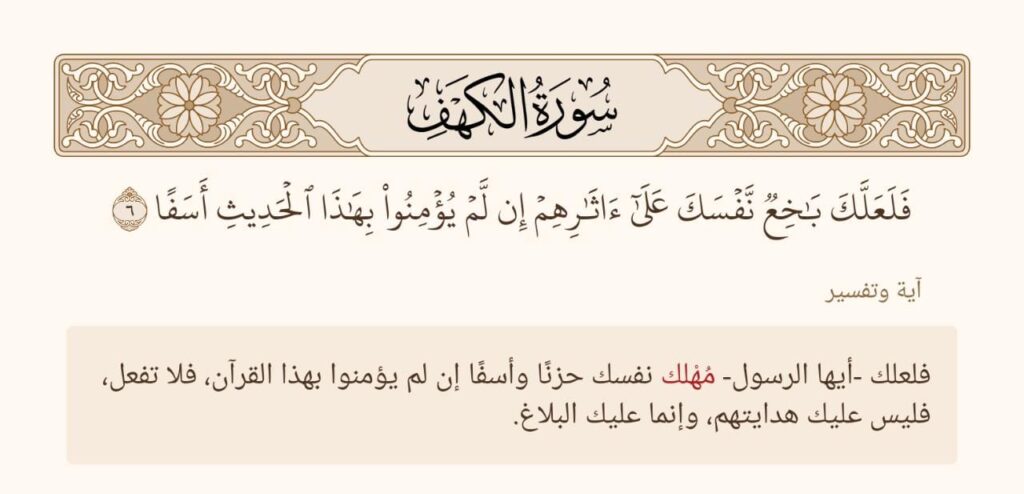 سُورَةُ الكَهْفِ
فَلَعَلَّكَ بَـٰخِعٌۭ نَّفْسَكَ عَلَىٰٓ ءَاثَـٰرِهِمْ إِن لَّمْ يُؤْمِنُوا۟ بِهَـٰذَا ٱلْحَدِيثِ أَسَفًا ٦
آية وتفسير
فلعلك -أيها الرسول- مُهْلك نفسك حزنًا وأسفًا إن لم يؤمنوا بهذا القرآن، فلا تفعل،
فليس عليك هدايتهم، وإنما عليك البلاغ.